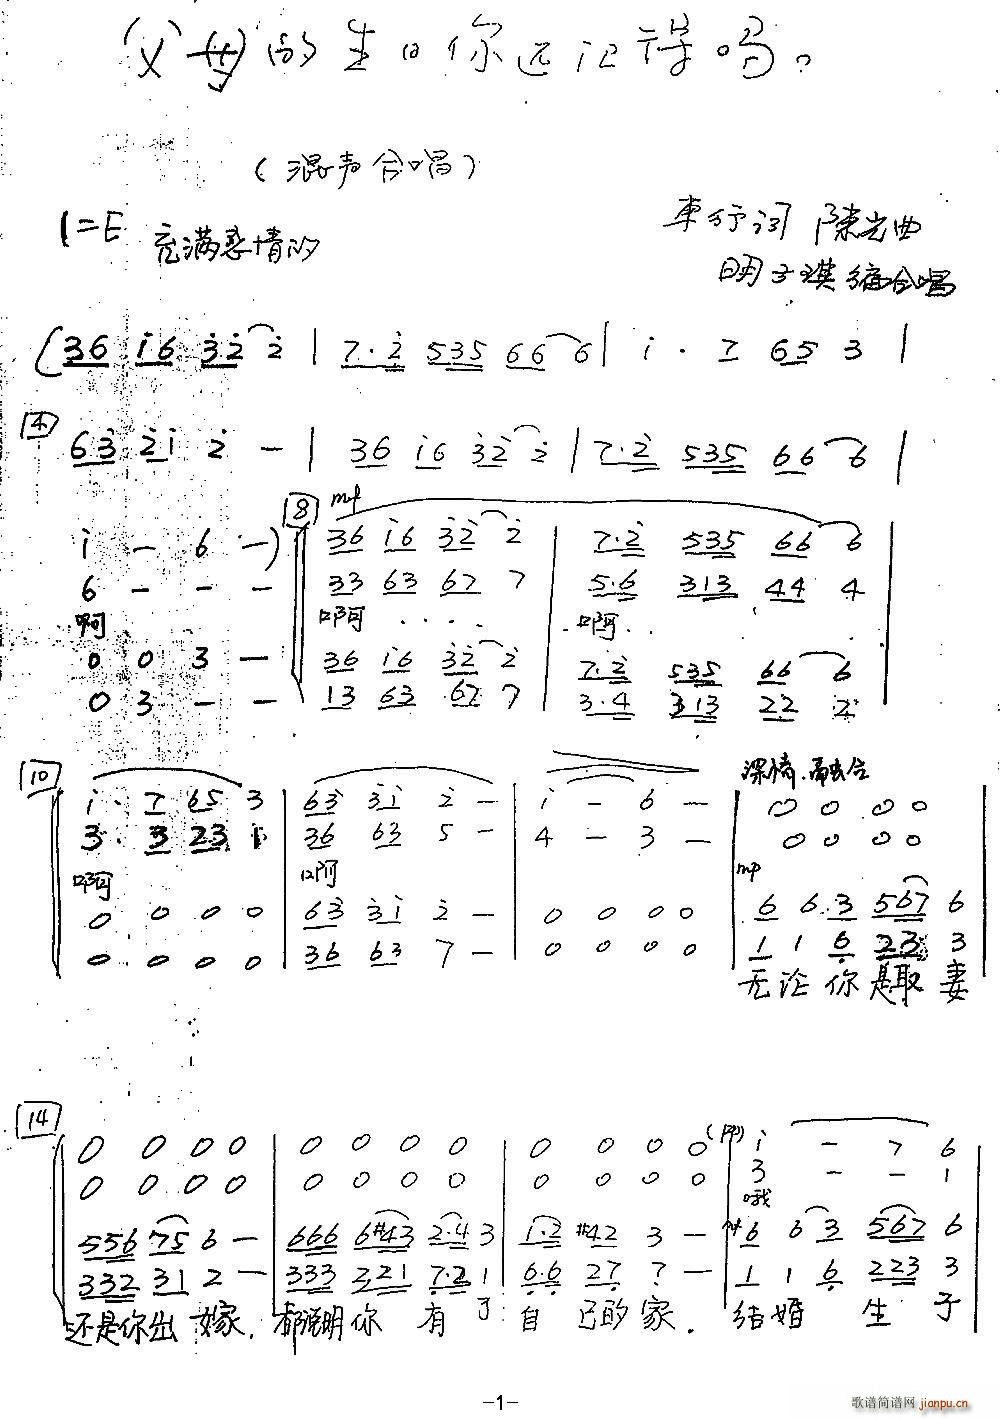 (父母)的生日你还记得吗?
(混声合唱)
1=E 充满感情的
车行词 陈光曲
明子琪编合唱
(36 i6 3̇2̇ 2̇ | 7·2̇ 535 66 6 | i · 7 65 3 |
4
63̇ 2̇i 2̇ - | 36 i6 3̇2̇ 2̇ | 7·2̇ 535 66 6 |
8 mf
i - 6 -) 36 i6 3̇2̇ 2̇ | 7·2̇ 535 66 6
6 - - - 33 63 67 7 | 5·6 313 44 4
啊 啊 · · · · 啊 · ·
0 0 3 - 36 i6 3̇2̇ 2̇ | 7·2̇ 535 66 6
0 3 - - 13 63 67 7 | 3·4 313 22 2
10 深情.融合
i · 7 65 3 | 63̇ 3̇i 2̇ - | i - 6 - | 0 0 0 0
3 · 3 23 1 | 36 63 5 - | 4 - 3 - | 0 0 0 0
啊 啊 mp
0 0 0 0 | 63̇ 3̇i 2̇ - | 0 0 0 0 | 6 6 3 567 6
0 0 0 0 | 36 63 7 - | 0 0 0 0 | 1 1 6̣ 23 3
无论你是取妻
14
0 0 0 0 | 0 0 0 0 | 0 0 0 0 | (pp) i - 7 6
0 0 0 0 | 0 0 0 0 | 0 0 0 0 | 3 - - 1
哦
556 75 6 - | 666 6#43 2·4 3 | 1·2 #42 3 - | 6 6 3 567 6
332 31 2 - | 333 221 7̣·2 1 | 6̣·6̣ 27̣ 7̣ - | 1 1 6̣ 223 3
还是你出嫁. 都说明你有了自己的家. 结婚生子
-1-
歌谱简谱网 jianpu.cn